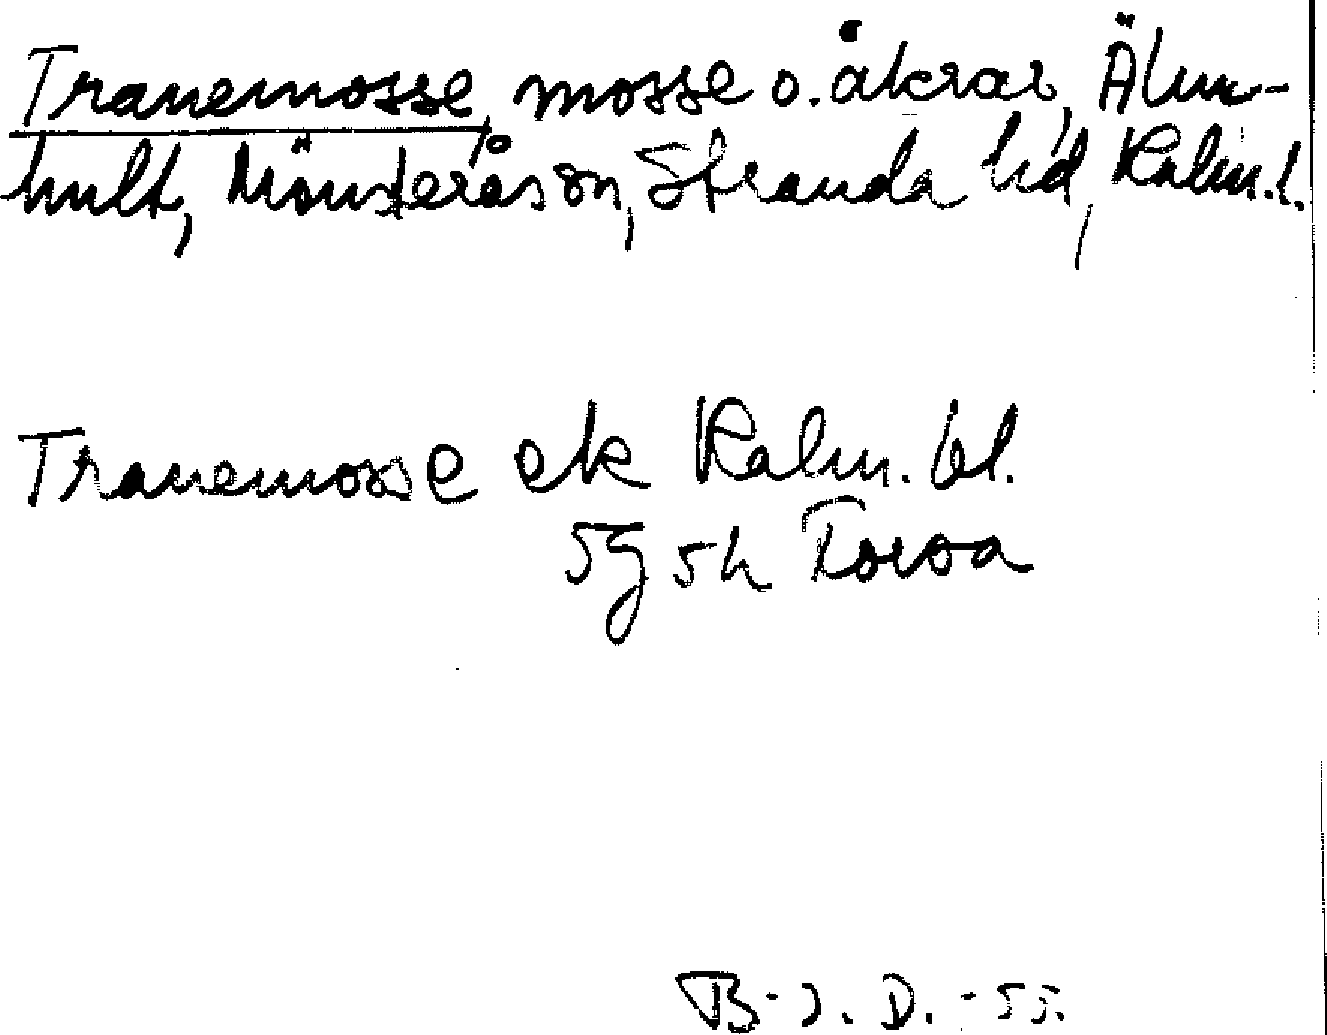 Tranemosse, mosse o. åkrar, Älm-
hult, Mönsterås sn, Stranda hd, Kalm. l.
Tranemosse ek Kalm. bl.
5g 5h Torsa
B-J. D. -55.